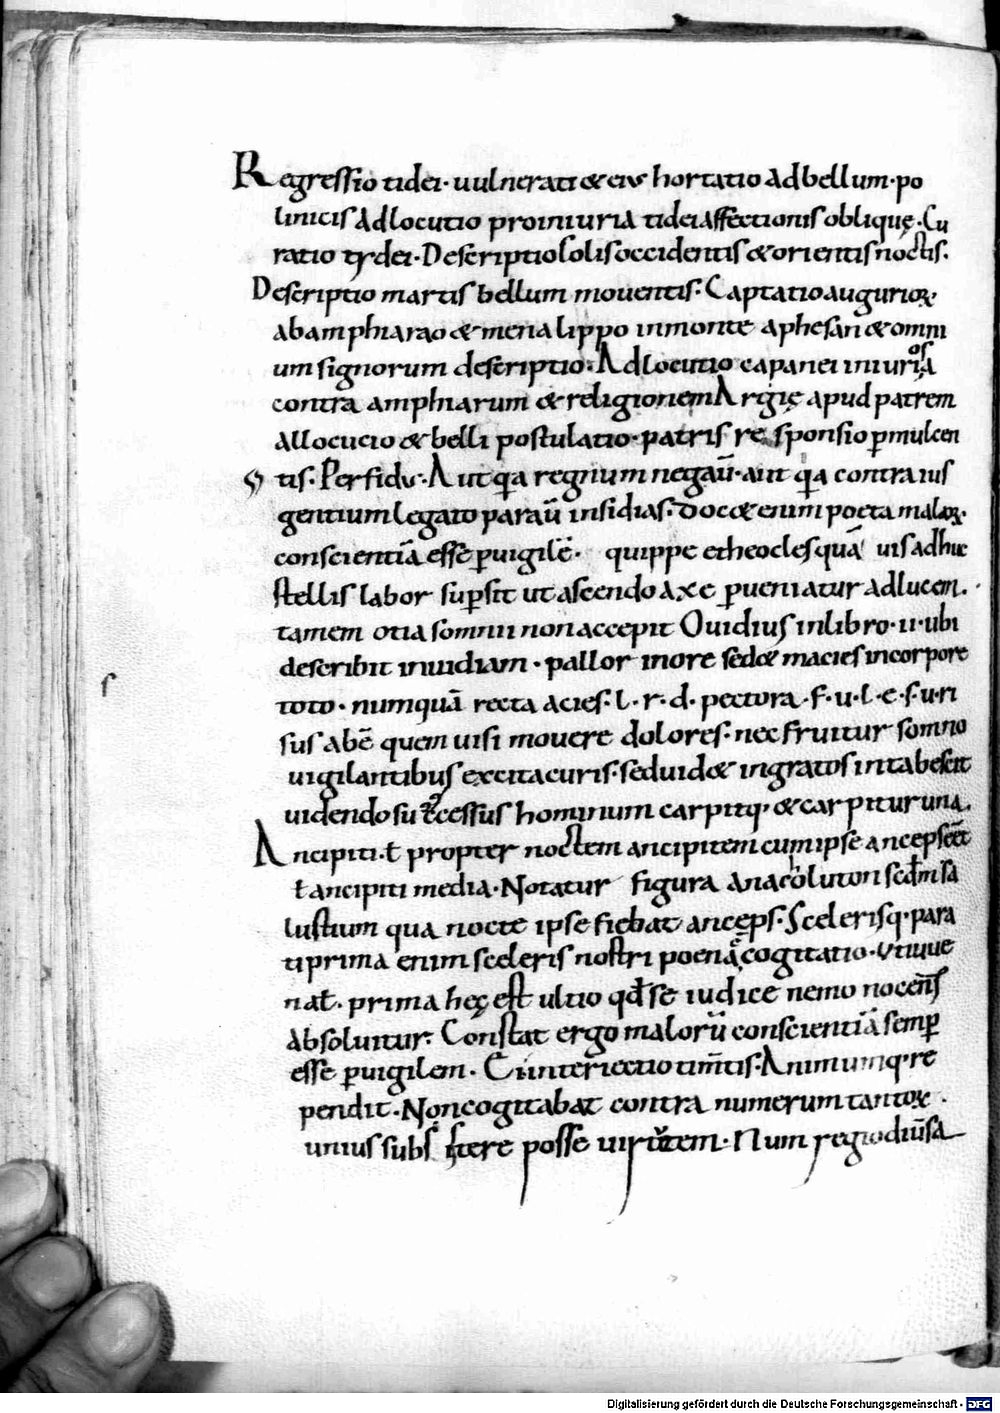 Regressio tidei· uulnerati & eius hortatio ad bellum· po
linicis adlocutio proiniuria tidei affectionis oblique· Cu
ratio tydei· Descriptio solis occidentis & orientis noctis·
Descriptio martis bellum mouentis· Captatio augurioꝝ
ab amphiarao & menalippo in monte aphesan & omni
um signorum descriptio· Adlocutio capanei iniuriosa
contra ampharum & religionem Argię apud patrem
allocucio & belli postulatio· patris re sponsio ꝑmulcen
tis· Perfidus· Aut qa regnum negaū· aut qa contra ius
gentium legato paraū insidias· Doc& enim poeta maloꝝ·
conscientiā esse ꝑuigilē· quippe etheocles quā uis adhuc
stellis labor suꝑsit ut ascendo axe ꝑueniatur ad lucem·
tamem otia somnii non accepit Ouidius in libro· ii· ubi
describit inuidiam· pallor in ore sed& macies in corpore
toto· numquā recta acies· l· r· d· pectora· f· u· l· e· s· u· ri
sus abē quem uisi mouere dolores· nec fruitur somno
uigilantibus excita curis· sed uid& ingratos intabescit
uidendo successus hominum carpitq· & carpitur una·
Ancipiti· ł propter noctem ancipitem cum ipse anceps eēt
ł ancipiti media· Notatur figura anacoluton scdm sa
lustium qua nocte ipse fiebat anceps· Scelerisq· para
ti prima enim sceleris nostri poena ę cogitatio· ut iuue
nał· prima hęc est ultio qđ se iudice nemo nocens̄
absoluitur· Constat ergo malorū conscientiā semꝑ
esse ꝑuigilem· interiectio Animumq· re
pendit· Non cogitabat contra numerum tantoꝝ·
unius subsistere posse uirtutem· Num regio diuersa
s